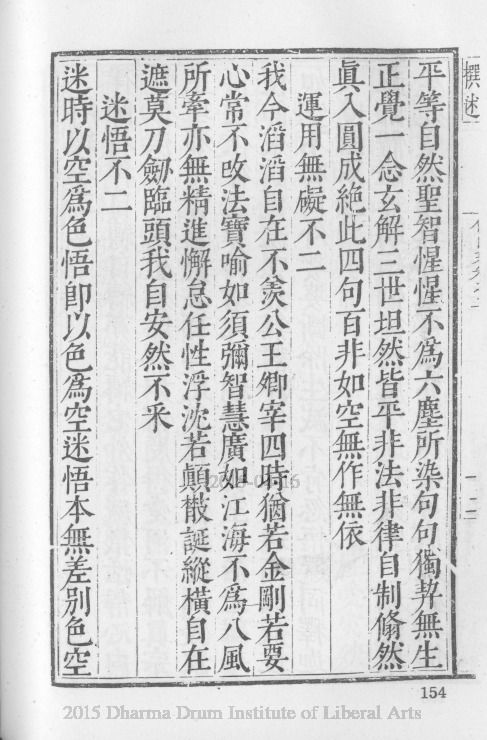 撰述
平等自然聖智惺惺不爲六塵所染句句獨契無生
正覺一念玄解三世坦然皆平非法非律自制翛然
眞入圓成絶此四句百非如空無作無依
運用無礙不二
我今滔滔自在不羨公王卿宰四時猶若金剛苦樂
心常不改法寶喻如須彌智慧廣如江海不爲八風
所牽亦無精進懈怠任性浮沈若顛散誕縱橫自在
遮莫刀劒臨頭我自安然不釆
迷悟不二
迷時以空爲色悟即以色爲空迷悟本無差別色空
154
2015 Dharma Drum Institute of Liberal Arts